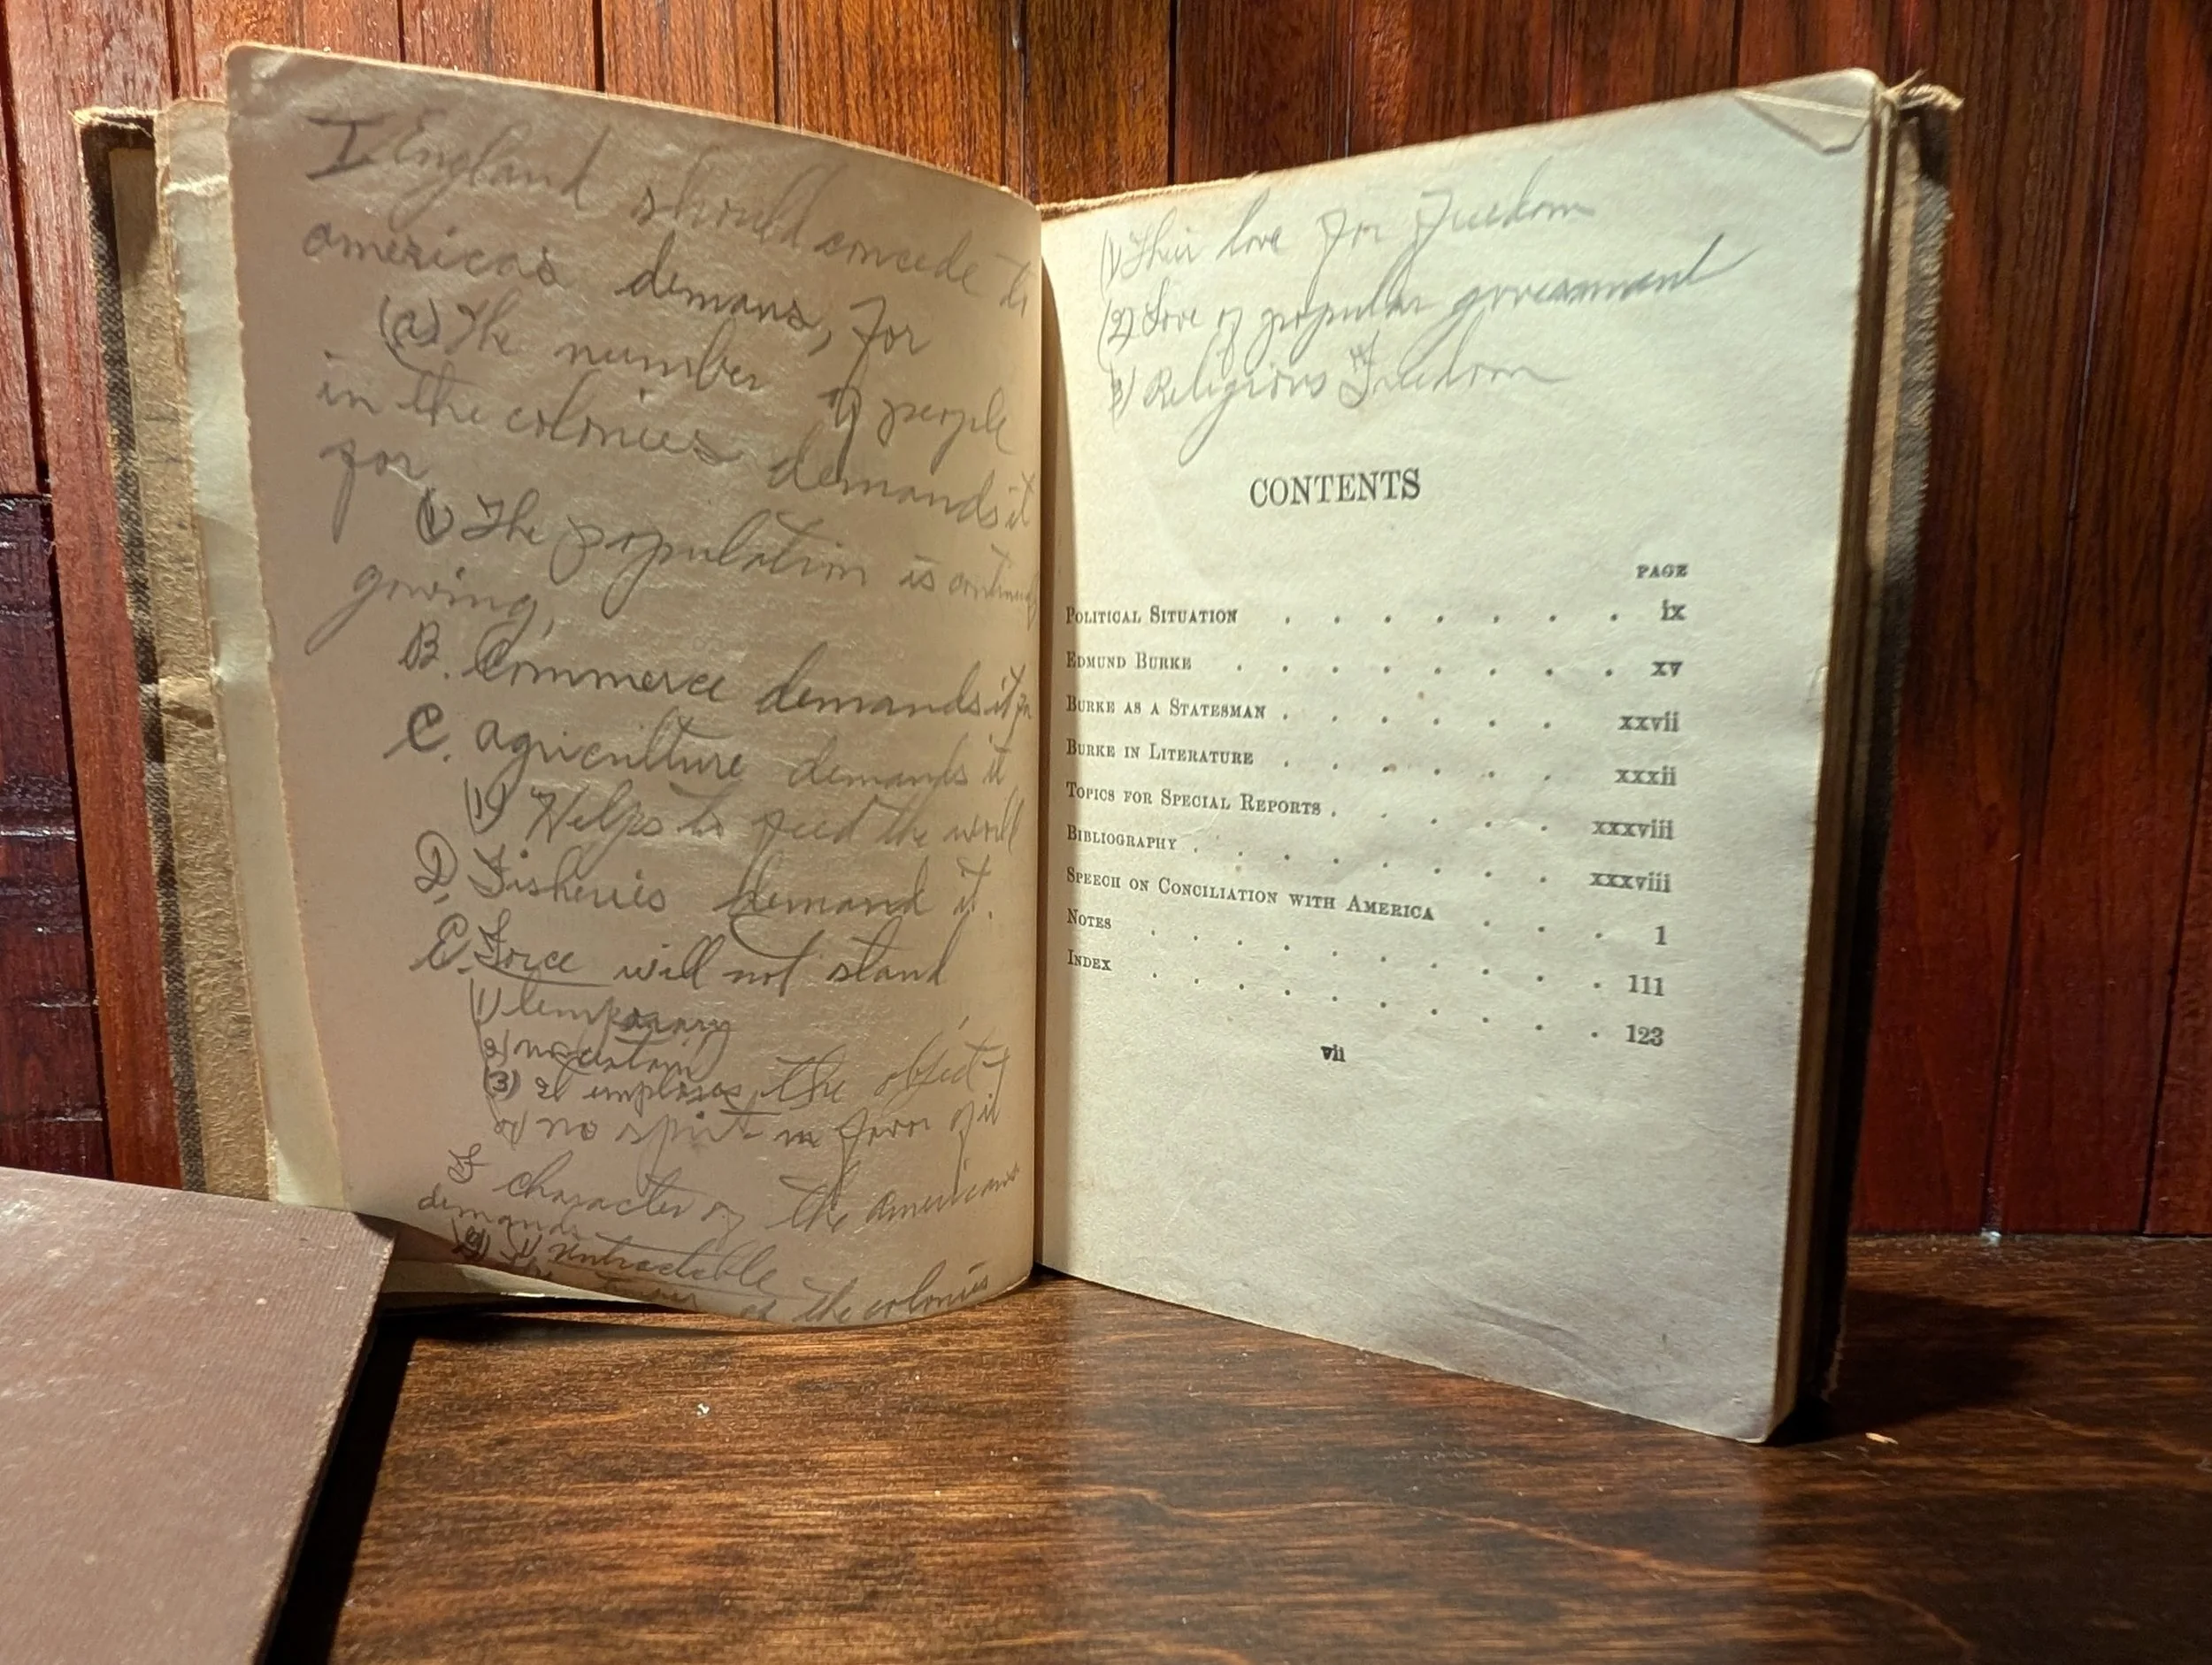 I. England should concede to
americas demans, for
(a) The number of people
in the colonies demands it
for
(1) The population is
growing,
B. Commerce demands it for
C. agriculture demands it
(1) Helps to feed the world
D. Fisheries demand it.
E. Force will not stand
(1) temporary
2) uncertain
(3) the object
no spirit in favor of it
F character of the americans
demands
1) untractable
of the colonies
(1) Their love for freedom
(2) Love of popular government
3) Religious Freedom
CONTENTS
PAGE
POLITICAL SITUATION . . . . . . . ix
EDMUND BURKE . . . . . . . . xv
BURKE AS A STATESMAN . . . . . . xxvii
BURKE IN LITERATURE . . . . . . xxxii
TOPICS FOR SPECIAL REPORTS . . . . . xxxviii
BIBLIOGRAPHY . . . . . . . . xxxviii
SPEECH ON CONCILIATION WITH AMERICA . . . 1
NOTES . . . . . . . . . . 111
INDEX . . . . . . . . . . 123
vii